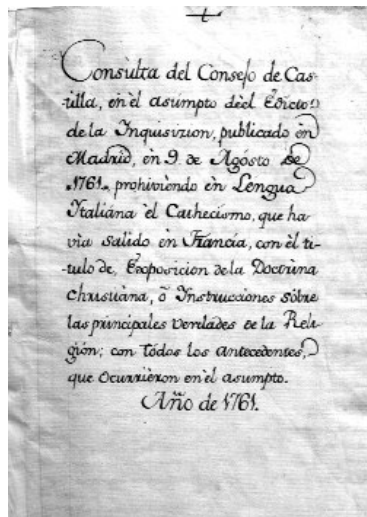 Consulta del Consejo de Cas-
tilla, en èl asumpto dèel Edicto
de la Inquisizion, publicado èn
Madrid, èn 9. de Agosto de
1761. prohiviendo èn Lengua
Italiána èl Cathecismo, que ha-
via salido èn Francia, con èl ti-
tulo de, Exposicion de la Doctrina
Christiana, ò Instrucciones sobre
las principales verdades de la Reli-
gión; con todos los antecedentes,
que ocurrieron en èl asumpto.
Año de 1761.